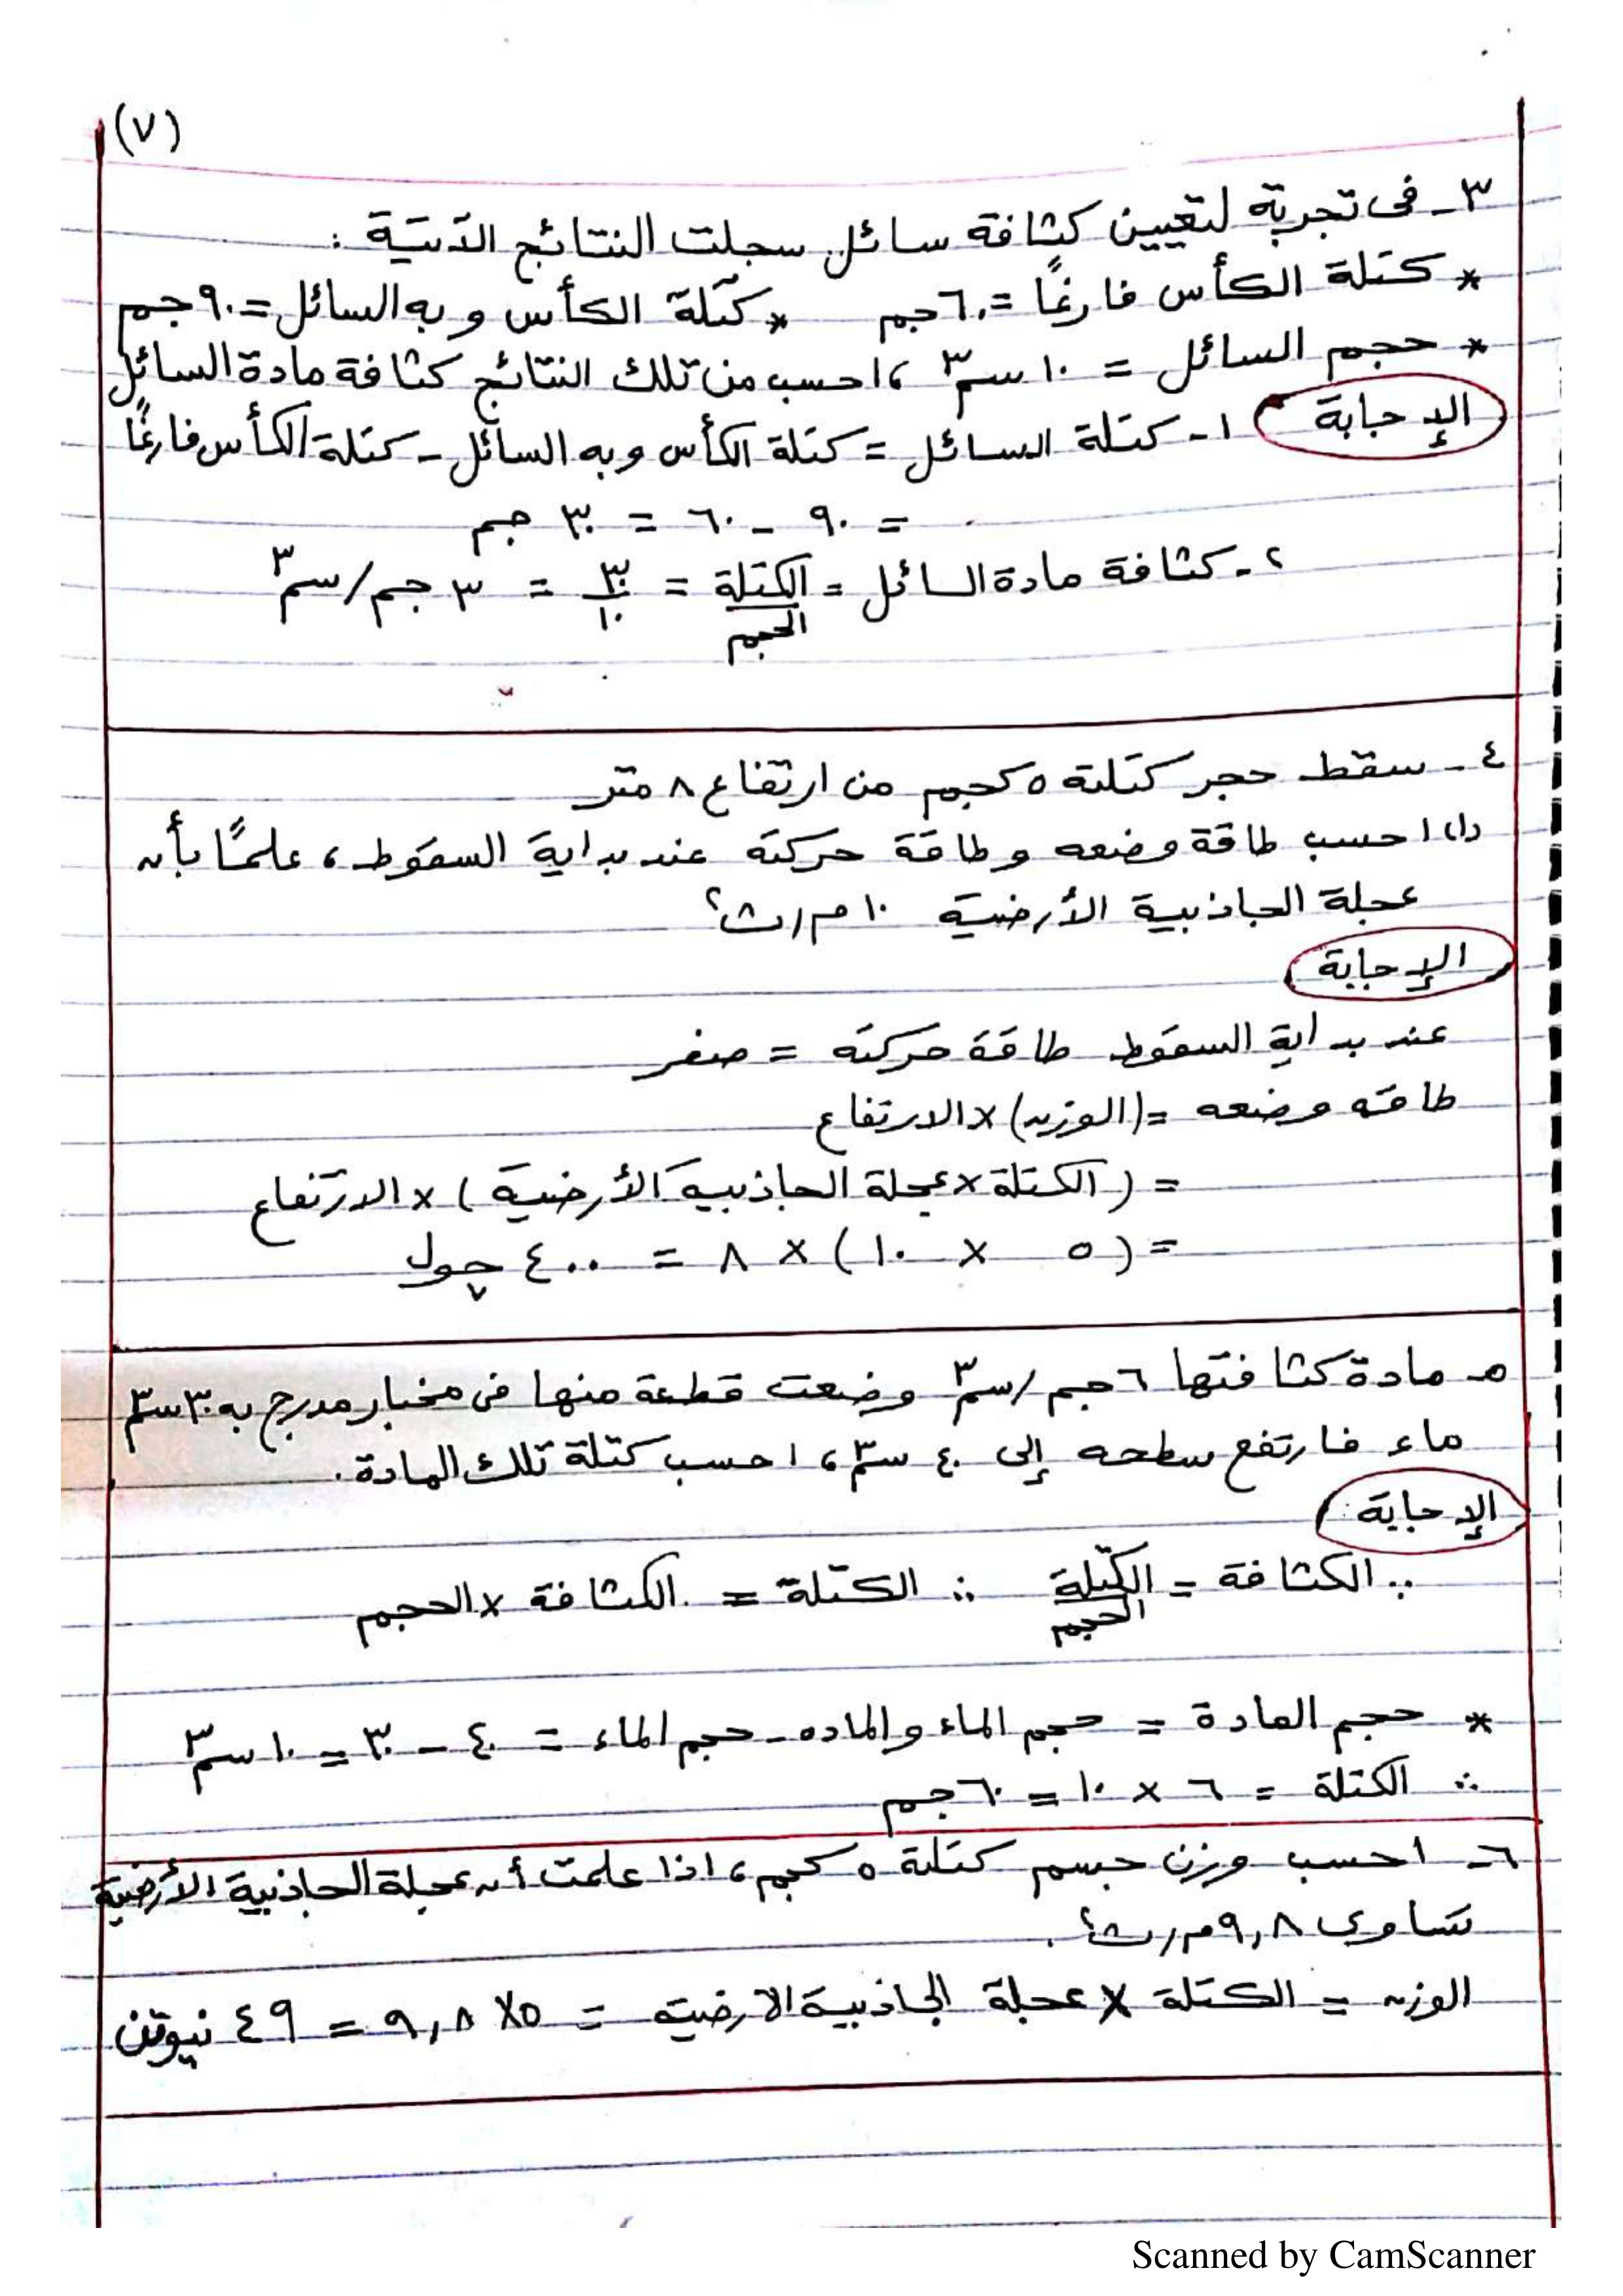 (٧)
٣ـ فى تجربة لتعيين كثافة سائل سجلت النتائج الآتية :
* كتلة الكأس فارغًا = ٦٠ جم * كتلة الكأس وبه السائل = ٩٠ جم
* حجم السائل = ١٠ سم٣ ، احسب من تلك النتائج كثافة مادة السائل
الإجابة ١- كتلة السائل = كتلة الكأس وبه السائل - كتلة الكأس فارغًا
= ٩٠ - ٦٠ = ٣٠ جم
٢- كثافة مادة السائل = الكتلة/الحجم = ٣٠/١٠ = ٣ جم/سم٣
٤ـ سقط حجر كتلته ٥ كجم من ارتفاع ٨ متر
(١) احسب طاقة وضعه وطاقة حركته عند بداية السقوط ، علمًا بأن
عجلة الجاذبية الأرضية ١٠ م/ث٢
الإجابة
عند بداية السقوط طاقة حركته = صفر
طاقه وضعه = (الوزن) × الارتفاع
= (الكتلة × عجلة الجاذبية الأرضية) × الارتفاع
= (٥ × ١٠) × ٨ = ٤٠٠ چول
٥- مادة كثافتها ٦ جم/سم٣ وضعت قطعة منها فى مخبار مدرج به ٣٠ سم٣
ماء فارتفع سطحه إلى ٤٠ سم٣ ، احسب كتلة تلك المادة .
الإجابة
∵ الكثافة = الكتلة/الحجم ∴ الكتلة = الكثافة × الحجم
* حجم المادة = حجم الماء والماده - حجم الماء = ٤٠ - ٣٠ = ١٠ سم٣
∴ الكتلة = ٦ × ١٠ = ٦٠ جم
٦- احسب وزن جسم كتلته ٥ كجم ، اذا علمت أن عجلة الجاذبية الأرضية
تساوى ٩,٨ م/ث٢ .
الوزن = الكتلة × عجلة الجاذبية الارضية = ٥ × ٩,٨ = ٤٩ نيوتن
Scanned by CamScanner